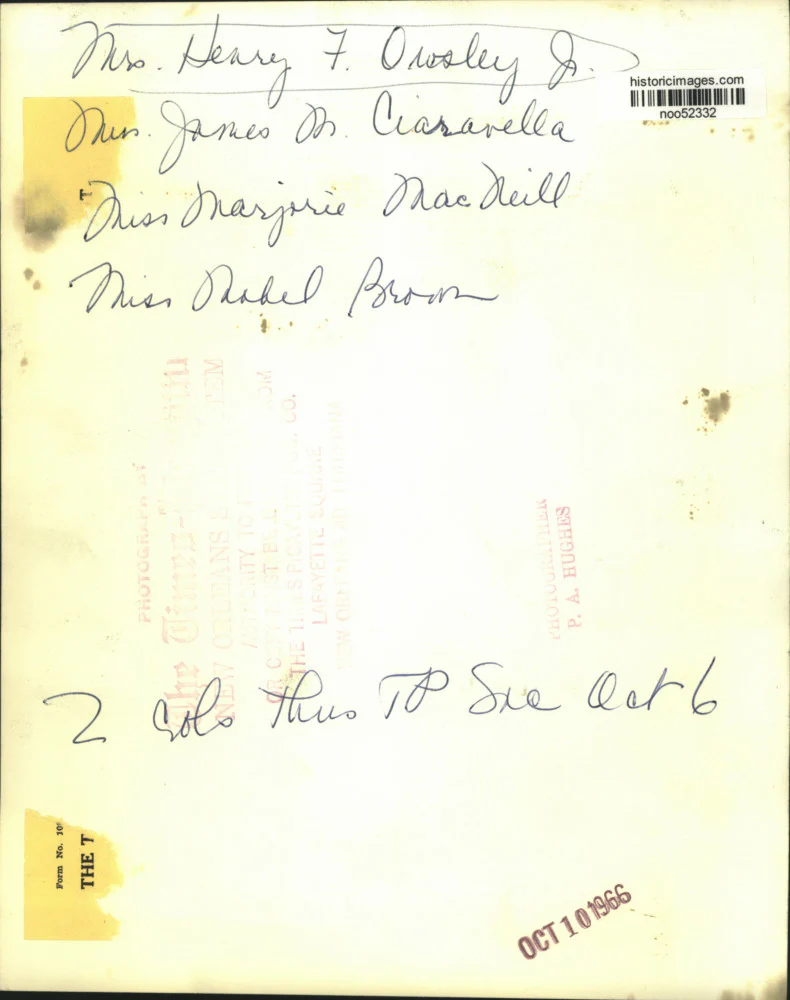 Mrs. Henry F. Owsley Jr.
historicimages.com
noo52332
Mrs. James M. Ciaravella
T
Miss Marjorie MacNeill
Miss Mabel Brown
PHOTOGRAPH BY
The Times-
NEW ORLEANS
AUTHORITY TO
OR MUST BE
THE TIMES PICAYUNE PUB. CO.
LAFAYETTE SQUARE
NEW ORLEANS
PHOTOGRAPHER
P. A. HUGHES
2 Cols Thus TP Soc Oct 6
Form No. 10
THE T
OCT 10 1966